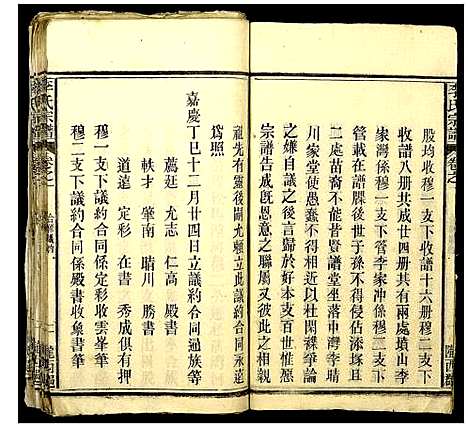 李氏宗譜
卷之
股均收穆一支下收譜十六册穆二支下
收譜八册共成廿四册共有兩處墳山李
家灣係穆一支下管李家冲係穆二支下
管載在譜牒後世子孫不得侵佔添塚且
二處苗裔不能偕賢譜堂坐落中灣李晴
川家擧使愚蠢不得相沿以杜閑襍爭論
之嫌自議之後言歸於好本支百世惟愿
宗譜告成旣恩意之聯屬又彼此之相親
祖先有靈後嗣允賴立此議約合同承遠
爲照
嘉慶丁巳十二月廿四日立議約合同通族等
薦廷 允志 仁高 殿書
軼才 肇南 晴川 勝書
道遠 定彩 在書 秀成俱有押
穆一支下議約合同係定彩收雲峯筆
穆二支下議約合同係殿書收象書筆
李氏宗譜
卷之
隴西郡